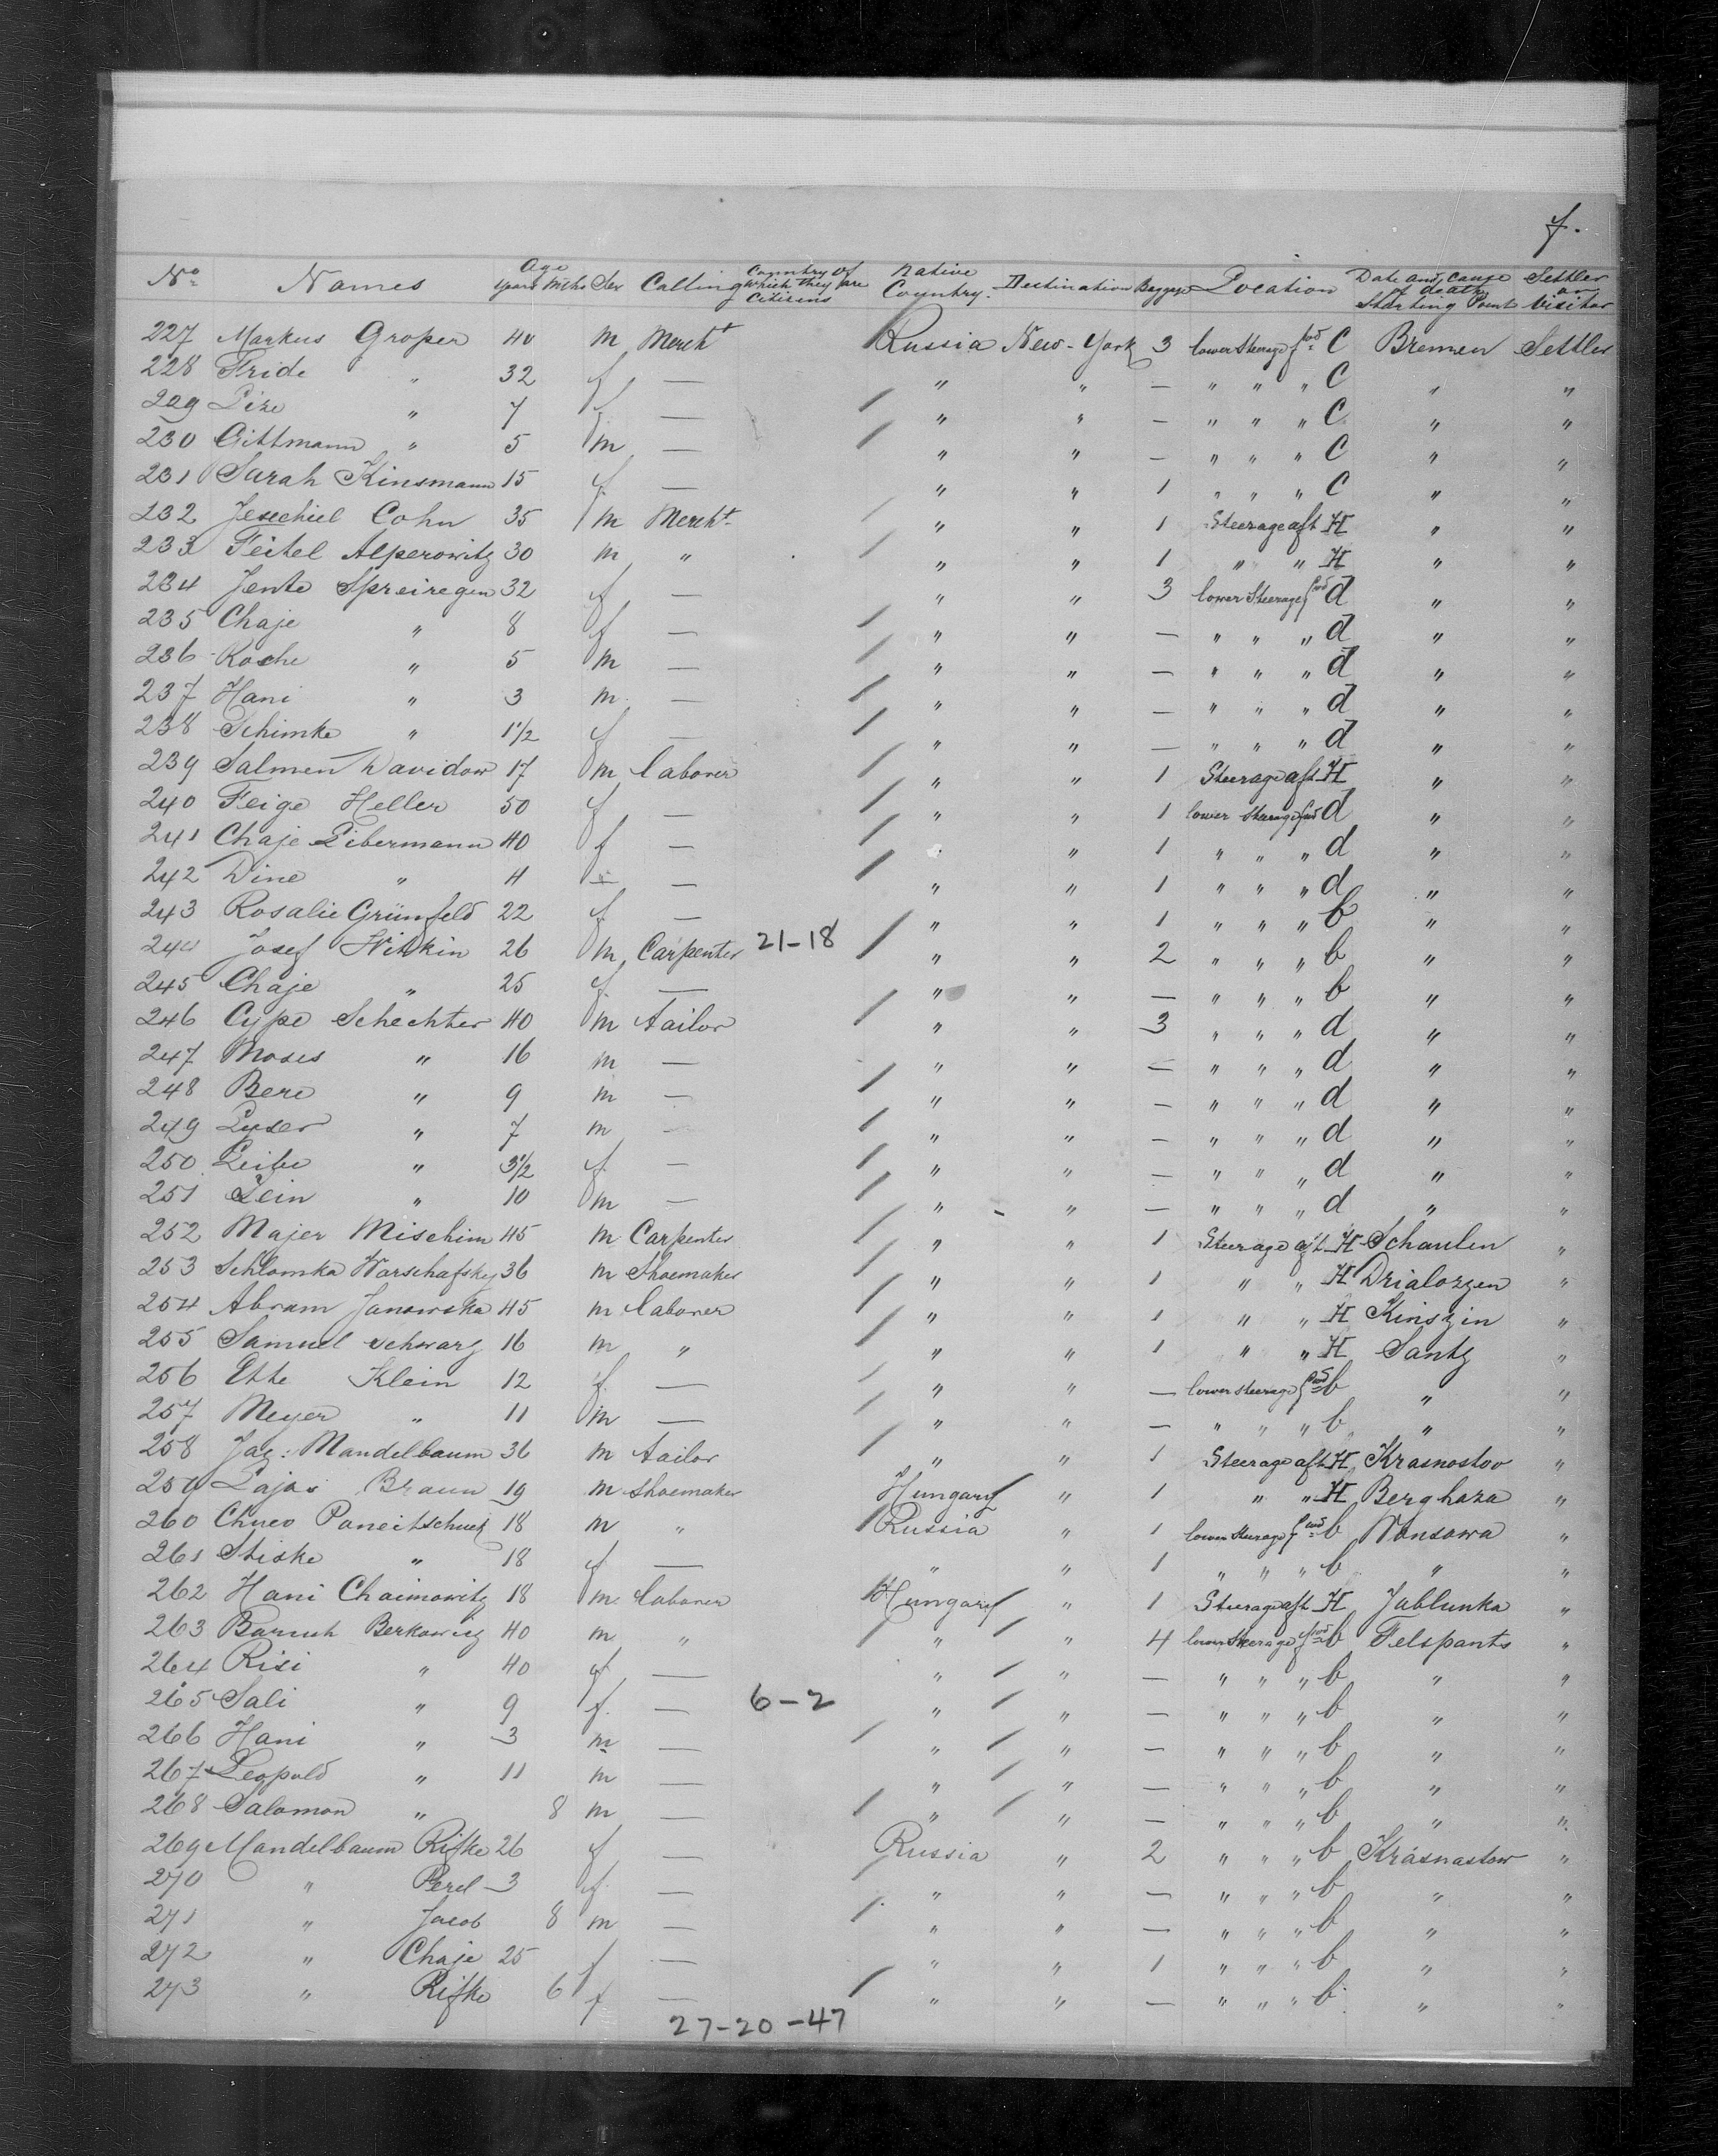 f.
No. Names Age years mths Sex Calling Country of which they are citizens Native Country. Destination Baggage Location Date and cause of death Starting Point Settler or Visitor
227 Markus Groper 40 m Mercht Russia New-York 3 lower Steerage fwd C Bremen Settler
228 Fride " 32 f — " " — " " " C " "
229 " 7 f — " " — " " " C " "
230 Gittmann " 5 m — " " — " " " C " "
231 Sarah Kinsmann 15 f. — " " 1 " " " C " "
232 Jesechiel Cohn 35 m Mercht. " " 1 Steerage aft H " "
233 Feitel Alperowitz 30 m " " " 1 " " H " "
234 Jente Spreiregen 32 f — " " 3 lower Steerage fwd d " "
235 Chaje " 8 f — " " — " " " d " "
236 Roche " 5 m — " " — " " " d " "
237 Hani " 3 m. — " " — " " " d " "
238 Schimke " 1 1/2 f — " " — " " " d " "
239 Salmen Davidow 17 m laborer " " 1 Steerage aft H " "
240 Feige Heller 50 f — " " 1 lower Steerage fwd d " "
241 Chaje Libermann 40 f — " " 1 " " " d " "
242 Dine " 4 — " " 1 " " " d " "
243 Rosalie Grünfeld 22 f. — " " 1 " " " b " "
244 Josef 26 m Carpenter 21-18 " " 2 " " " b " "
245 Chaje " 25 f. — " " — " " " b " "
246 Cype Schechter 40 m tailor " " 3 " " " d " "
247 Moses " 16 m — " " — " " " d " "
248 Bere " 9 m — " " — " " " d " "
249 Lyser " 7 m — " " — " " " d " "
250 " 3 1/2 f. — " " — " " " d " "
251 " 10 m — " " — " " " d " "
252 Majer Mischim 45 m Carpenter " " 1 Steerage aft H Schaulen "
253 Schlomka Warschafsky 36 m Shoemaker " " 1 " " H Drialozzen "
254 Abram Janowska 45 m laborer " " 1 " " H Kinszin "
255 Samuel Schwarz 16 m " " " 1 " " H Santz "
256 Ette Klein 12 f. — " " — lower steerage fwd b " "
257 Meyer " 11 m — " " — " " " b " "
258 Jac: Mandelbaum 36 m tailor " " 1 Steerage aft H Krasnostov "
259 Lajos Braun 19 m Shoemaker Hungary " 1 " " H Berghaza "
260 18 m " Russia " 1 lower steerage fwd b Wonsowa "
261 Stiske " 18 f — " " 1 " " " b " "
262 Hani Chaimowitz 18 m laborer Hungary " 1 Steerage aft H Jablunka "
263 Baruch Berkowicz 40 m " " " 4 lower Steerage fwd b Felspants "
264 Risi " 40 f — " " — " " " b " "
265 Sali " 9 f. — 6-2 " " — " " " b " "
266 Hani " 3 m — " " — " " " b " "
267 Leopold " 11 m — " " — " " " b " "
268 Salomon " 8 m — " " — " " " b " "
269 Mandelbaum Rifke 26 f — Russia " 2 " " " b Krasnastow "
270 " Perel 3 f. — " " — " " " b " "
271 " Jacob 8 m — " " — " " " b " "
272 " Chaje 25 f — " " 1 " " " b " "
273 " Rifke 6 f — " " — " " " b " "
27-20-47